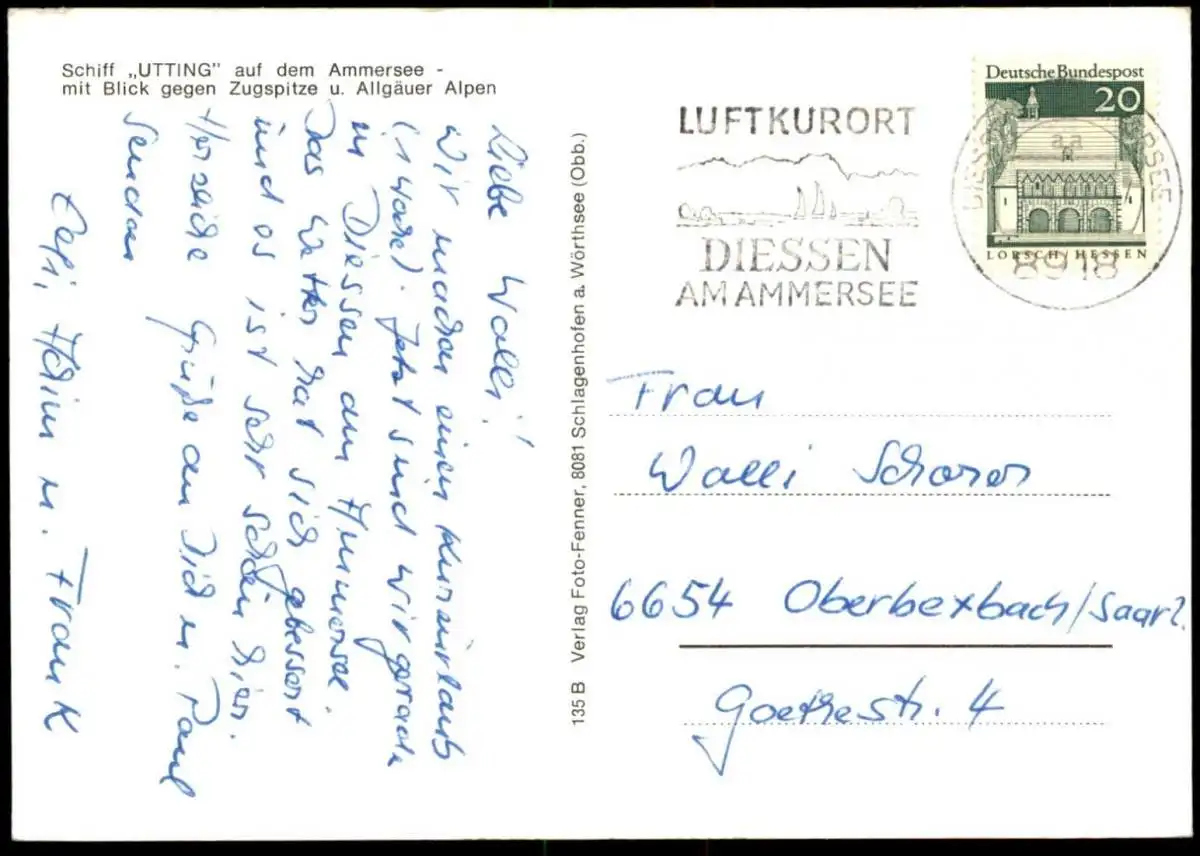 Schiff „UTTING" auf dem Ammersee -
mit Blick gegen Zugspitze u. Allgäuer Alpen
Liebe Walli!
Wir machen einen Kurzurlaub
(1 Woche). Jetzt sind wir gerade
in Diessen am Ammersee.
Das Wetter hat sich gebessert
und es ist sehr schön hier.
Herzliche Grüße an Dich u. Paul
senden
Heini u. Frank
135 B Verlag Foto-Fenner, 8081 Schlagenhofen a. Wörthsee (Obb.)
LUFTKURORT
DIESSEN
AM AMMERSEE
Deutsche Bundespost
20
LORSCH/HESSEN
aa
8918
Frau
Walli Scherer
6654 Oberbexbach/Saarl.
Goethestr. 4